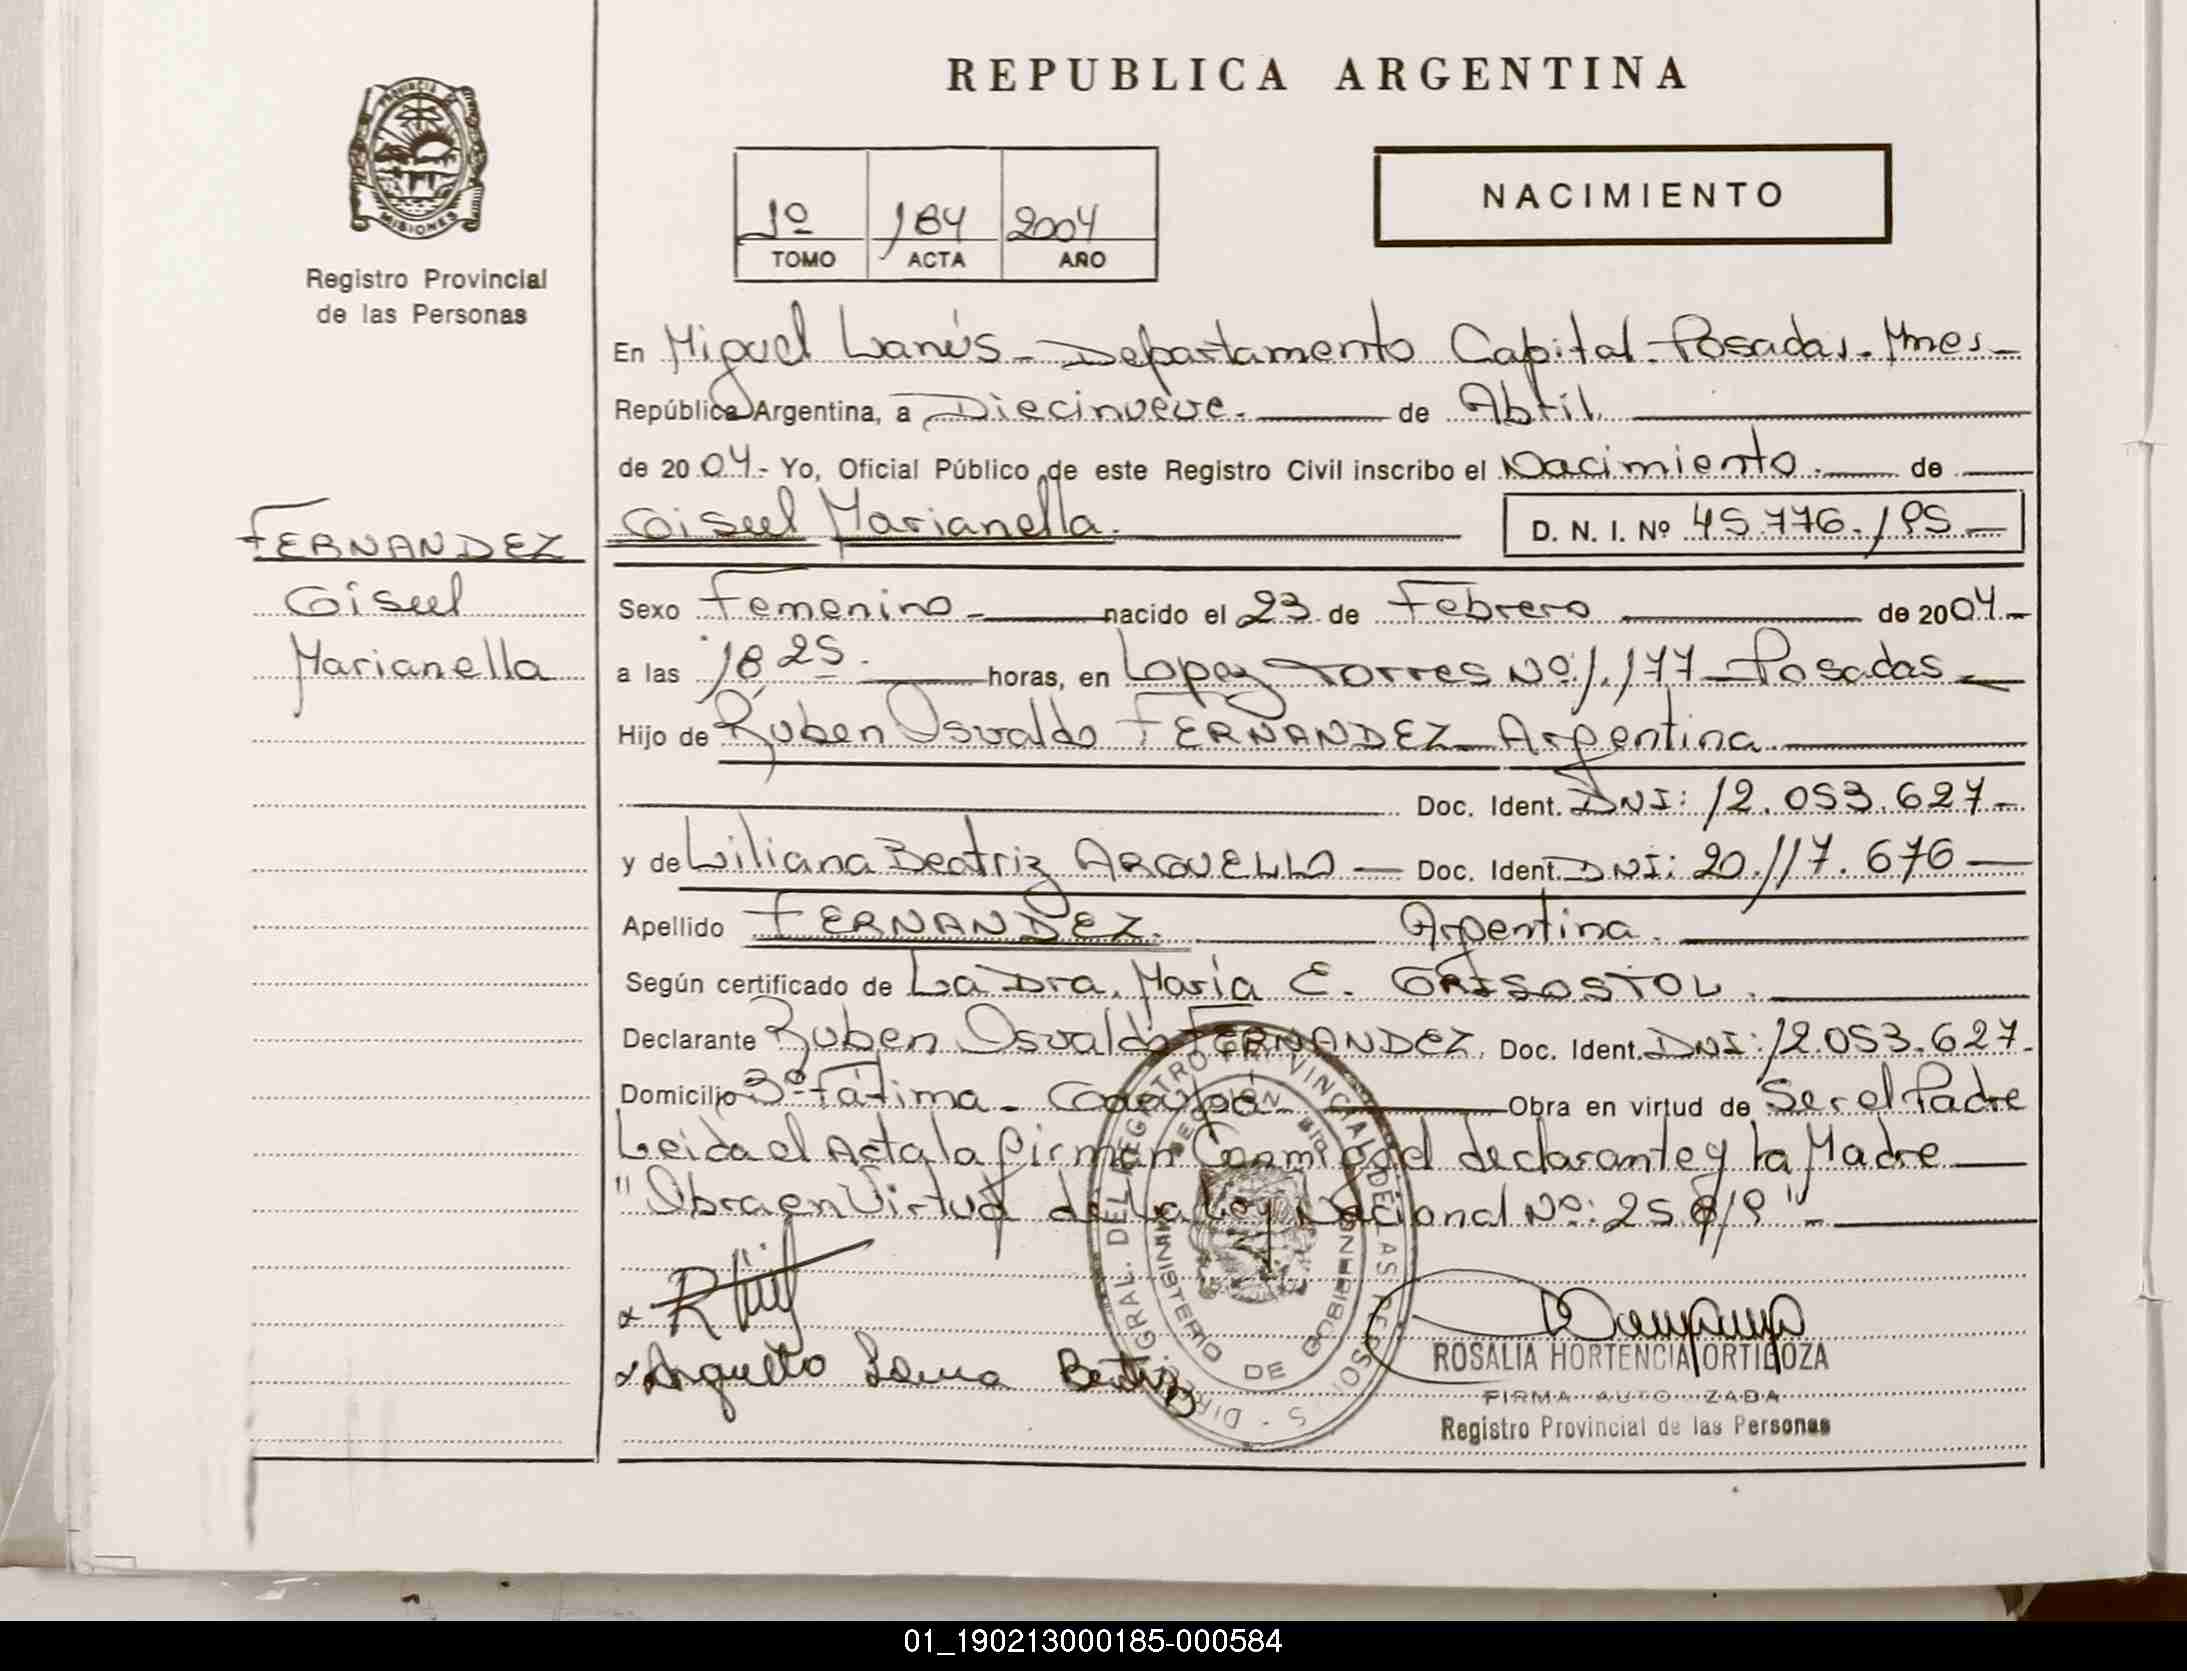 REPUBLICA ARGENTINA
PROVINCIA DE
MISIONES
Registro Provincial
de las Personas
1º 184 2004
TOMO ACTA AÑO
NACIMIENTO
En Miguel Lanús - Departamento Capital - Posadas - Mnes -
República Argentina, a Diecinueve. de Abril.
de 2004.- Yo, Oficial Público de este Registro Civil inscribo el Nacimiento. de
FERNANDEZ
Gisel
Marianella
Gisel Marianella. D. N. I. Nº 45.776.195 -
Sexo Femenino - nacido el 23 de Febrero de 2004 -
a las 18,25. horas, en Lopez Torres Nº: 1.177 - Posadas -
Hijo de Ruben Osvaldo FERNANDEZ - Argentina.
Doc. Ident. DNI: 12.053.627 -
y de Liliana Beatriz ARGUELLO - Doc. Ident. DNI: 20.117.676 -
Apellido FERNANDEZ. Argentina.
Según certificado de La Dra. María E. GRISOSTOL.
Declarante Ruben Osvaldo FERNANDEZ. Doc. Ident. DNI: 12.053.627 -
Domicilio Bº Fátima - Garupá - Obra en virtud de Ser el Padre
Leida el Acta la firman Conmigo el declarante y La Madre
"Obra en Virtud de La Ley Nacional Nº: 25.819" -
DIREC. GRAL. DEL REGISTRO PROVINCIAL DE LAS PERSONAS
MINISTERIO DE GOBIERNO
x
x Arguello Beatriz
ROSALIA HORTENCIA ORTIGOZA
FIRMA AUTO ZADA
Registro Provincial de las Personas
01_190213000185-000584